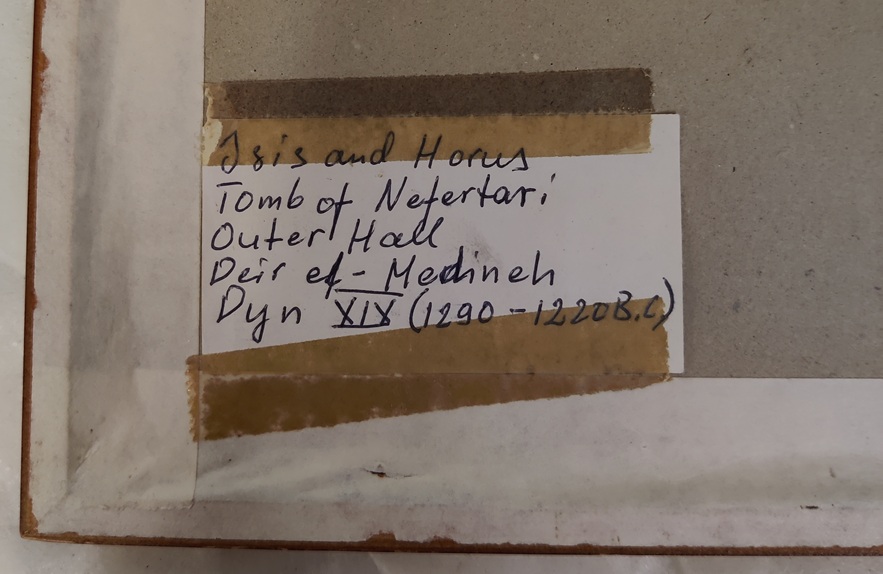 Isis and Horus
Tomb of Nefertari
Outer Hall
Deir el-Medineh
Dyn XIX (1290-1220B.C)